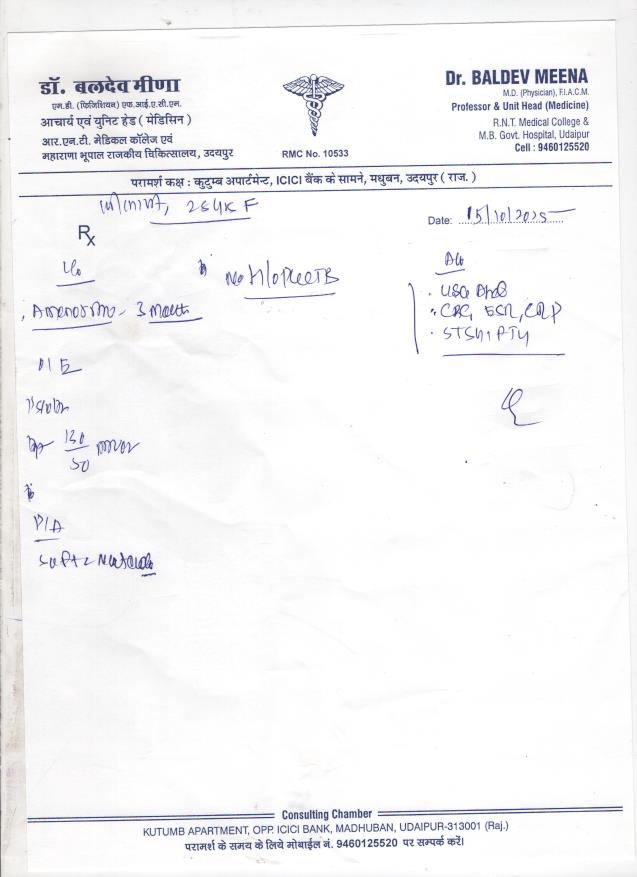 डॉ. बलदेव मीणा
एम.डी. (फिजिशियन) एफ.आई.ए.सी.एम.
आचार्य एवं युनिट हेड ( मेडिसिन )
आर.एन.टी. मेडिकल कॉलेज एवं
महाराणा भूपाल राजकीय चिकित्सालय, उदयपुर
RMC No. 10533
Dr. BALDEV MEENA
M.D. (Physician), F.I.A.C.M.
Professor & Unit Head (Medicine)
R.N.T. Medical College &
M.B. Govt. Hospital, Udaipur
Cell : 9460125520
परामर्श कक्ष : कुटुम्ब अपार्टमेन्ट, ICICI बैंक के सामने, मधुबन, उदयपुर ( राज. )
F
Date: 15/10/2025
Rx
No H/O
- 3 Month
USG
CBC, ESR, CRP
O/E
130
50
P/A
Soft
Consulting Chamber
KUTUMB APARTMENT, OPP. ICICI BANK, MADHUBAN, UDAIPUR-313001 (Raj.)
परामर्श के समय के लिये मोबाईल नं. 9460125520 पर सम्पर्क करें।